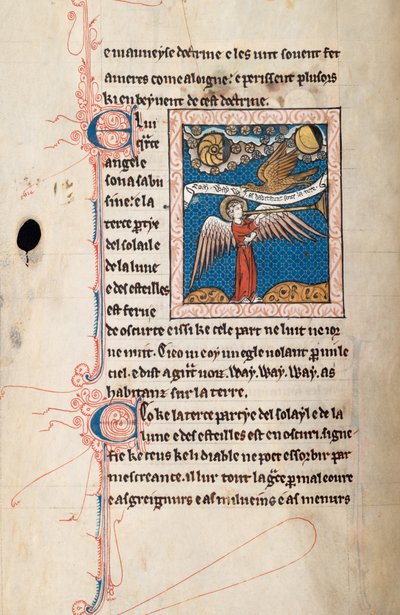 e mauueyse doctrine e les unt souent fet
ameres come aloigne: e perissent plusors
ki en beyuent de cest doctrine.
E li
qᵃrte
angele
sona sa bu
sine: e la
terce ptye
del solail e
de la lune
e des esteilles
est ferue
Way Way Way as habitanz sur la tere
de oscurte e issi ke cele part ne luit ne ior
ne nuit. E ieo ui e oy un egle uolant par mi le
ciel. e dist a gᵃnt uoiz. Way. Way. Way. as
habitanz sur la terre.
Co ke la terce partye del solayl e de la
lune e des esteilles est en oscuri. signe
fie ke ceus ke li diable ne poet essorbir par
mescreance. il lur tout la gᵃce p mal eoure
e as greignurs e as milueins e as menurs